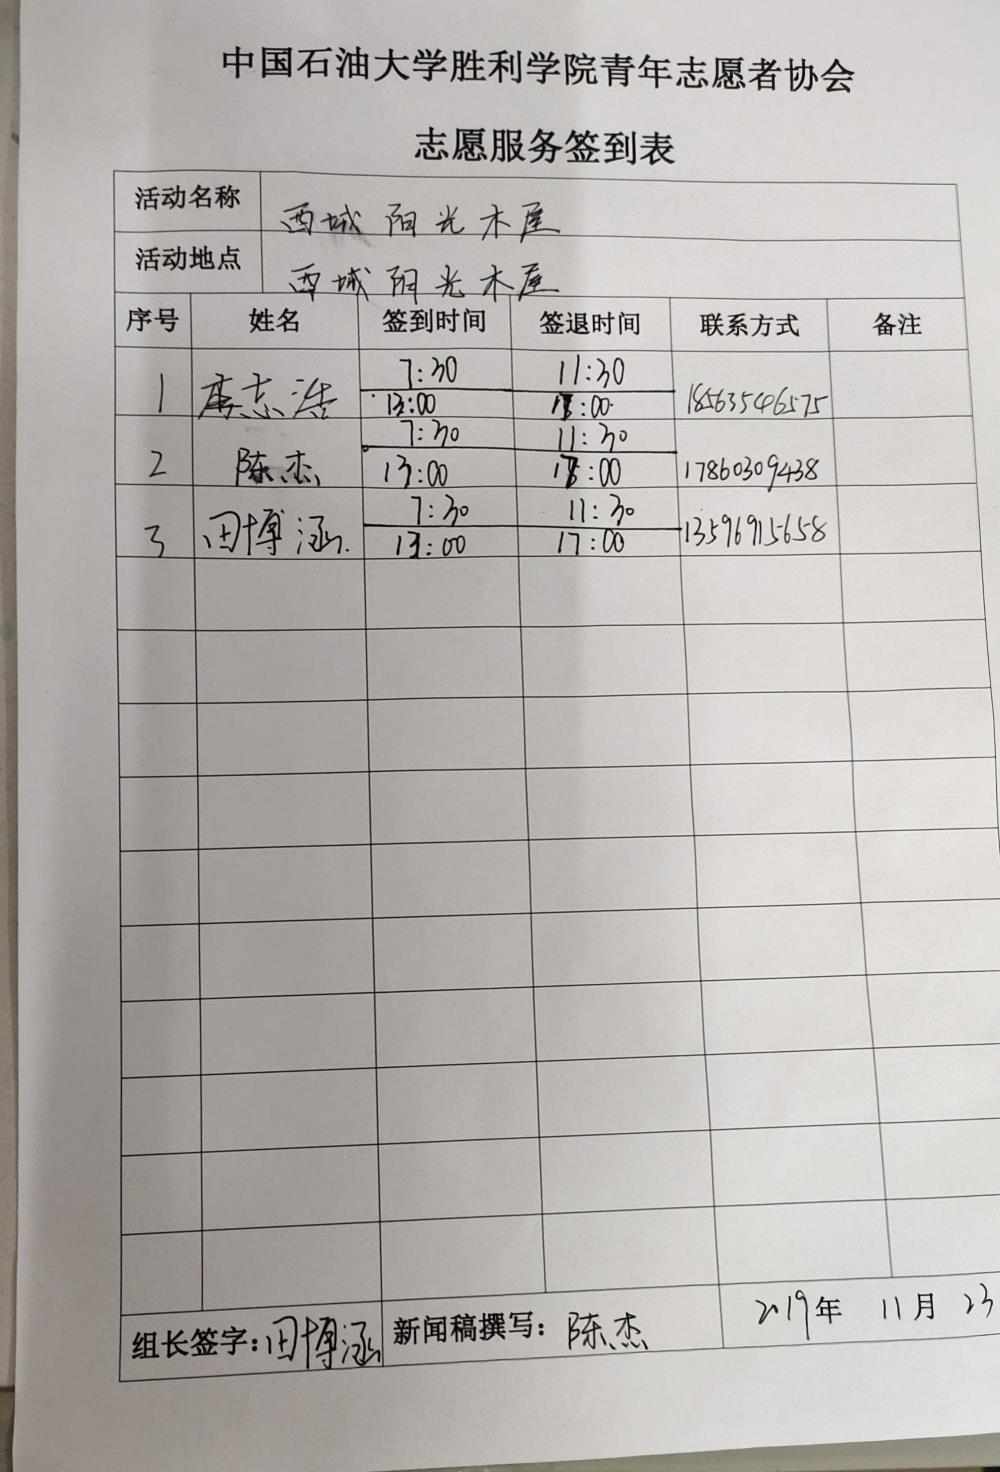 中国石油大学胜利学院青年志愿者协会
志愿服务签到表
活动名称 西城阳光木屋
活动地点 西城阳光木屋
序号 姓名 签到时间 签退时间 联系方式 备注
7:30 11:30
1 志浩 18563546575
13:00 :00
7:30 11:30
2 陈杰 17860309438
13:00 :00
7:30 11:30
3 田博涵 13596915658
13:00 17:00
组长签字:田博涵 新闻稿撰写:陈杰 2019年 11月 23